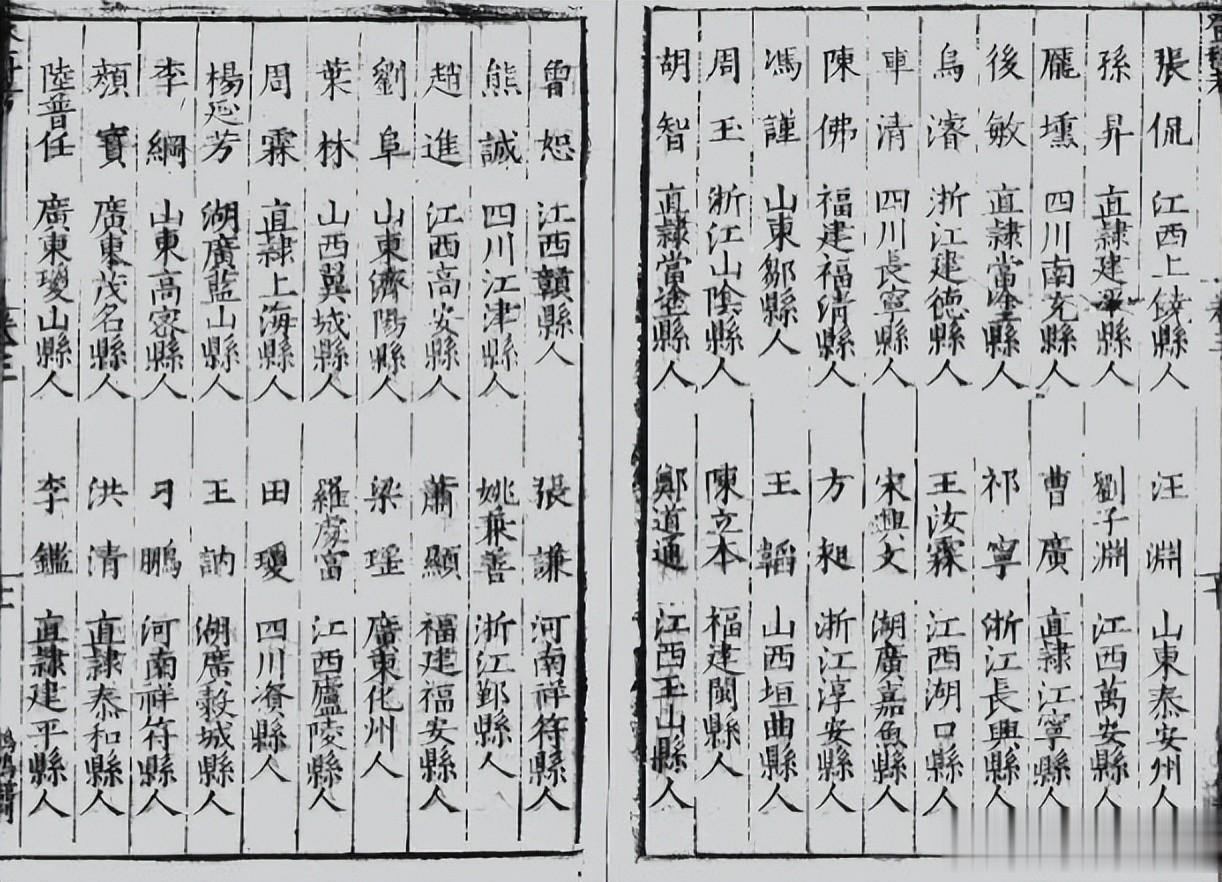 張侃 江西上饒縣人 汪淵 山東泰安州人
孫昇 直隷建平縣人 劉子淵 江西萬安縣人
龎壎 四川南充縣人 曹廣 直隷江寧縣人
後敏 直隷當塗縣人 祁寧 浙江長興縣人
烏濬 浙江建德縣人 王汝霖 江西湖口縣人
車清 四川長寧縣人 宋興文 湖廣嘉魚縣人
陳佛 福建福清縣人 方昶 浙江淳安縣人
馮謹 山東鄒縣人 王韜 山西垣曲縣人
周玉 浙江山陰縣人 陳立本 福建閩縣人
胡智 直隷當塗縣人 鄭道通 江西玉山縣人
魯恕 江西贛縣人 張謙 河南祥符縣人
熊誠 四川江津縣人 姚秉善 浙江鄞縣人
趙進 江西高安縣人 蕭顯 福建福安縣人
劉阜 山東濟陽縣人 梁瑶 廣東化州人
葉林 山西翼城縣人 羅處富 江西廬陵縣人
周霖 直隷上海縣人 田瓊 四川資縣人
楊延芳 湖廣藍山縣人 王訥 湖廣穀城縣人
李綱 山東高密縣人 刁鵬 河南祥符縣人
顏寶 廣東茂名縣人 洪清 直隷泰和縣人
陸普任 廣東瓊山縣人 李鑑 直隷建平縣人